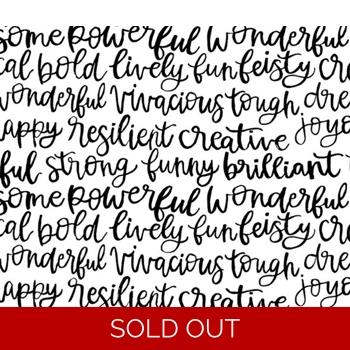 some powerful wonderful
cal bold lively fun feisty cr
wonderful vivacious tough dre
appy resilient creative joyo
ful strong funny brilliant
some powerful wonderful
cal bold lively fun feisty cr
wonderful vivacious tough dre
appy resilient creative joyo
SOLD OUT